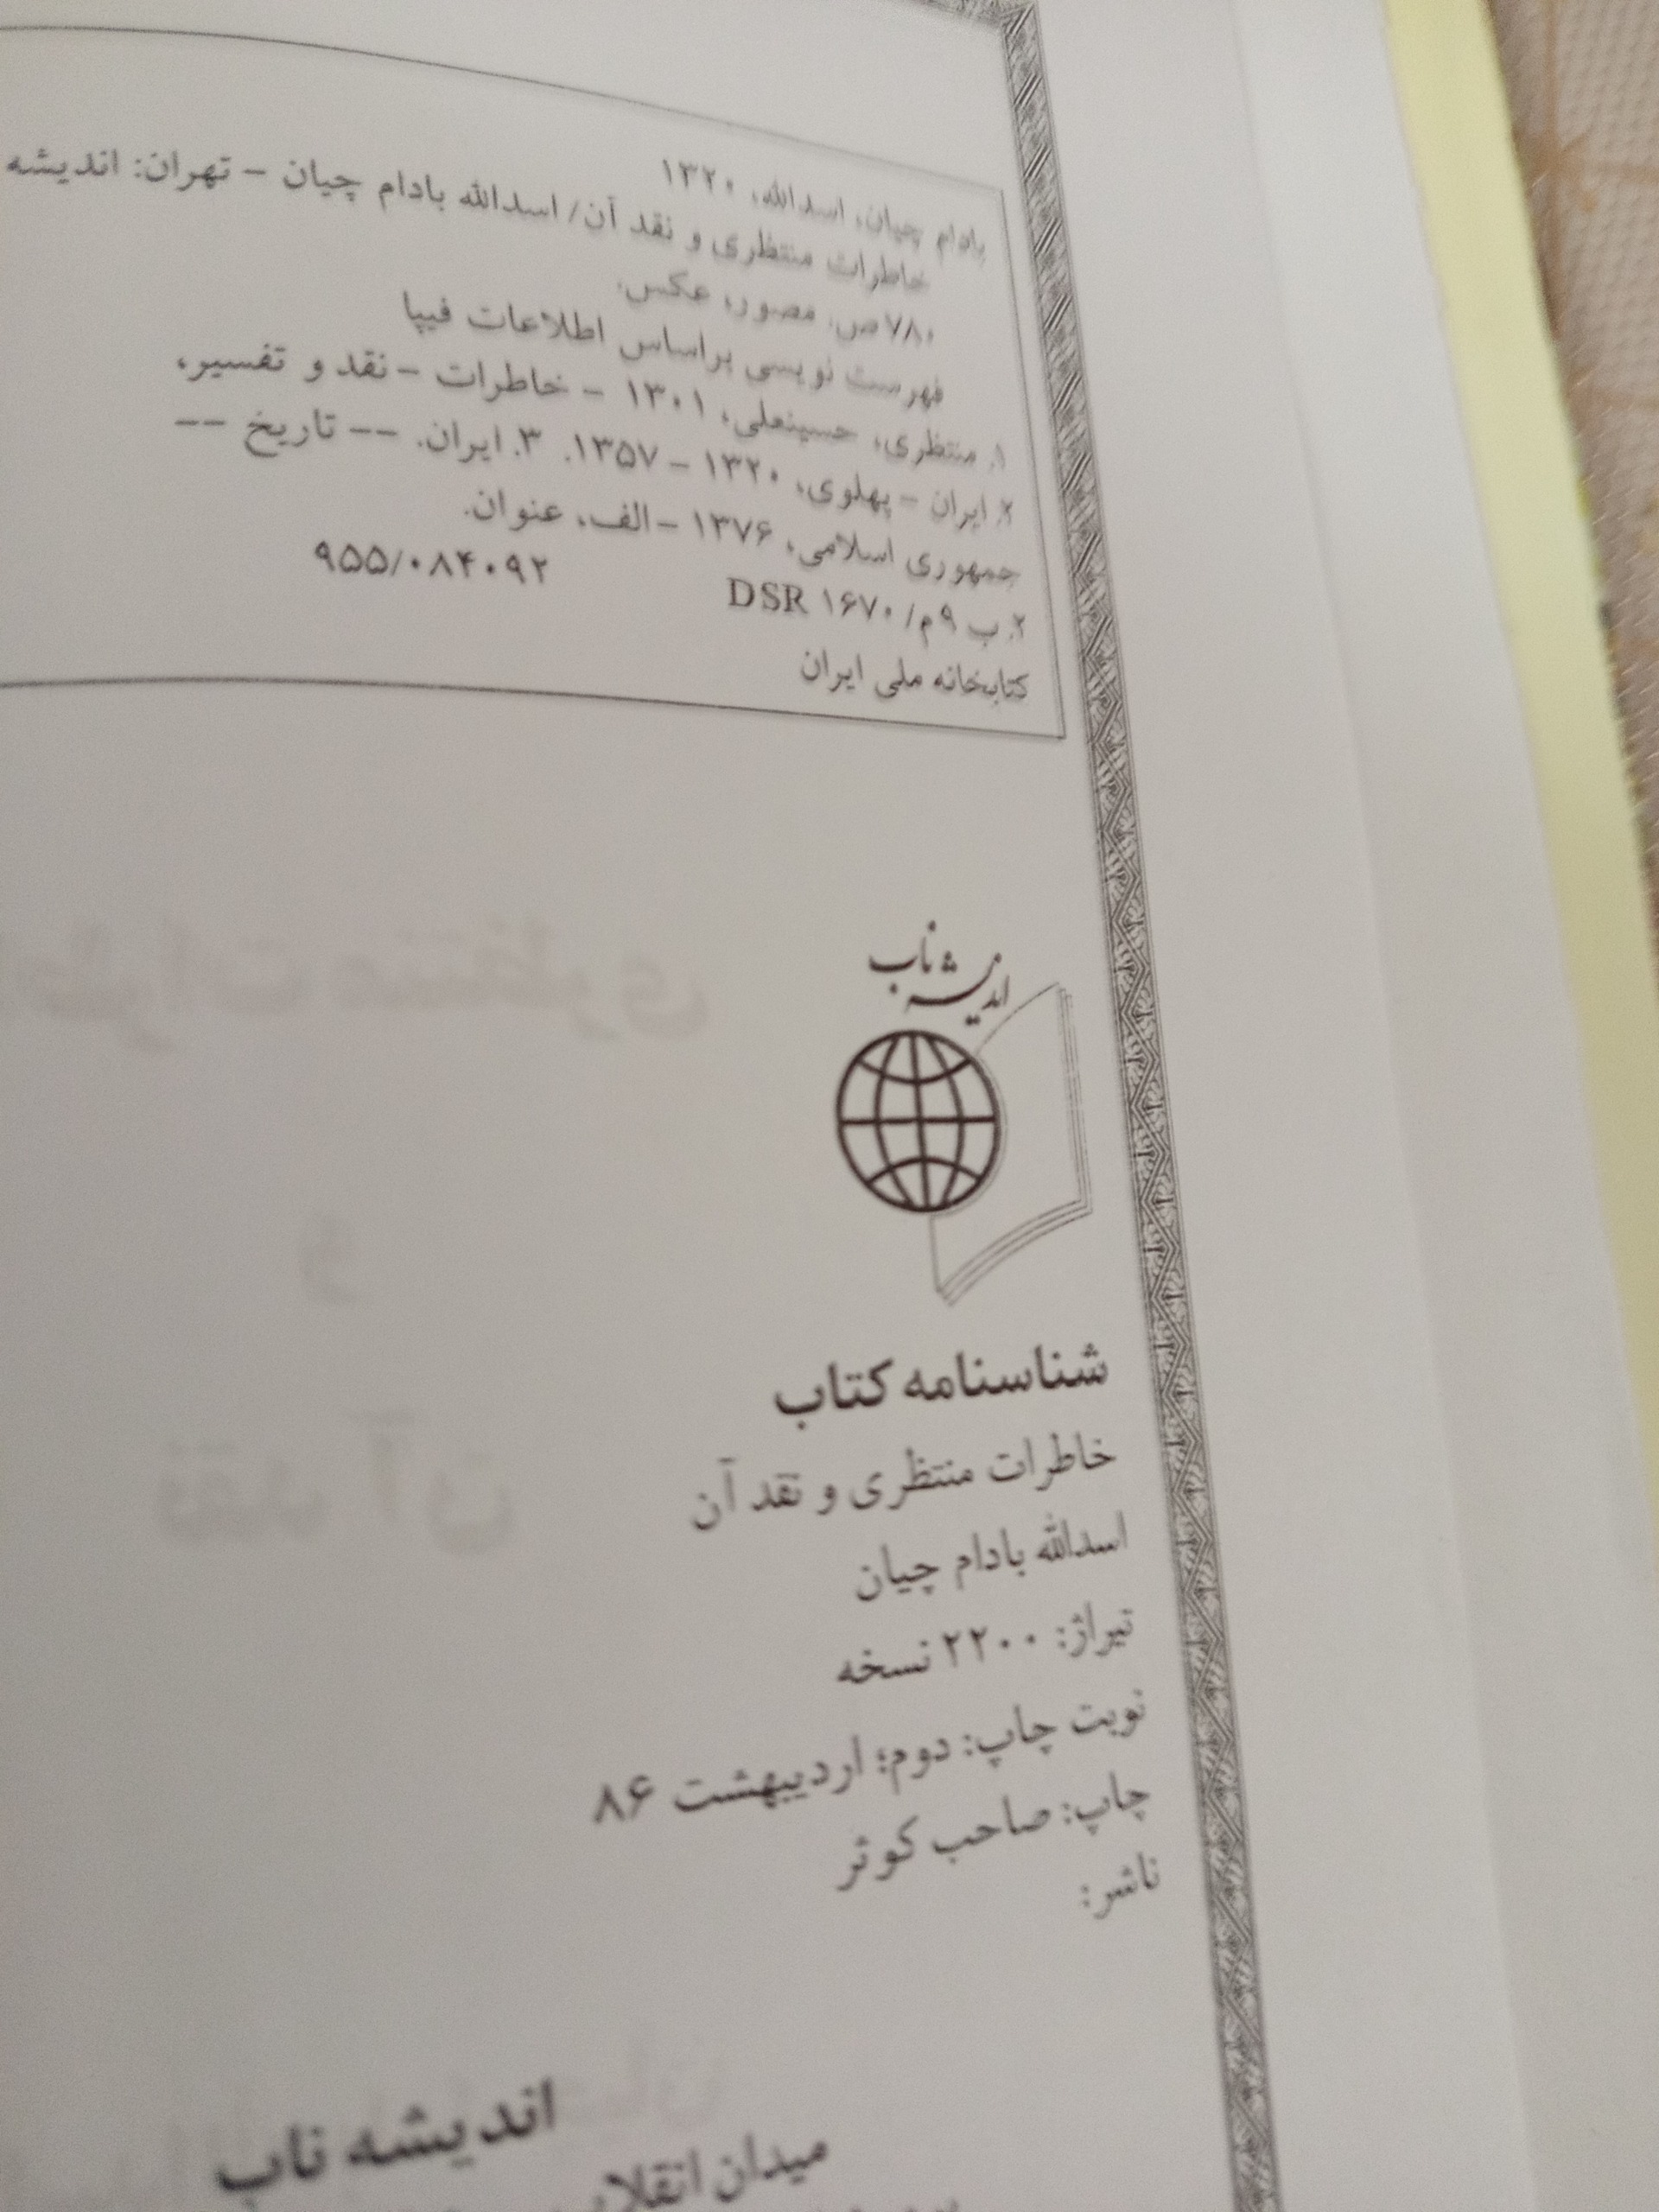 بادام چیان، اسدالله، ۱۳۲۰
خاطرات منتظری و نقد آن/ اسدالله بادام چیان – تهران: اندیشه
۷۸۰ص. مصور، عکس.
فهرست نویسی براساس اطلاعات فیپا
۱. منتظری، حسینعلی، ۱۳۰۱ – خاطرات – نقد و تفسیر،
۲. ایران – پهلوی، ۱۳۲۰ – ۱۳۵۷. ۳. ایران. -- تاریخ --
جمهوری اسلامی، ۱۳۷۶ – الف، عنوان.
۲. ب ۹م/ ۱۶۷۰ DSR ۹۵۵/۰۸۴۰۹۲
کتابخانه ملی ایران
اندیشه ناب
شناسنامه کتاب
خاطرات منتظری و نقد آن
اسدالله بادام چیان
تیراژ: ۲۲۰۰ نسخه
نوبت چاپ: دوم؛ اردیبهشت ۸۶
چاپ: صاحب کوثر
ناشر:
اندیشه ناب
میدان انقلاب